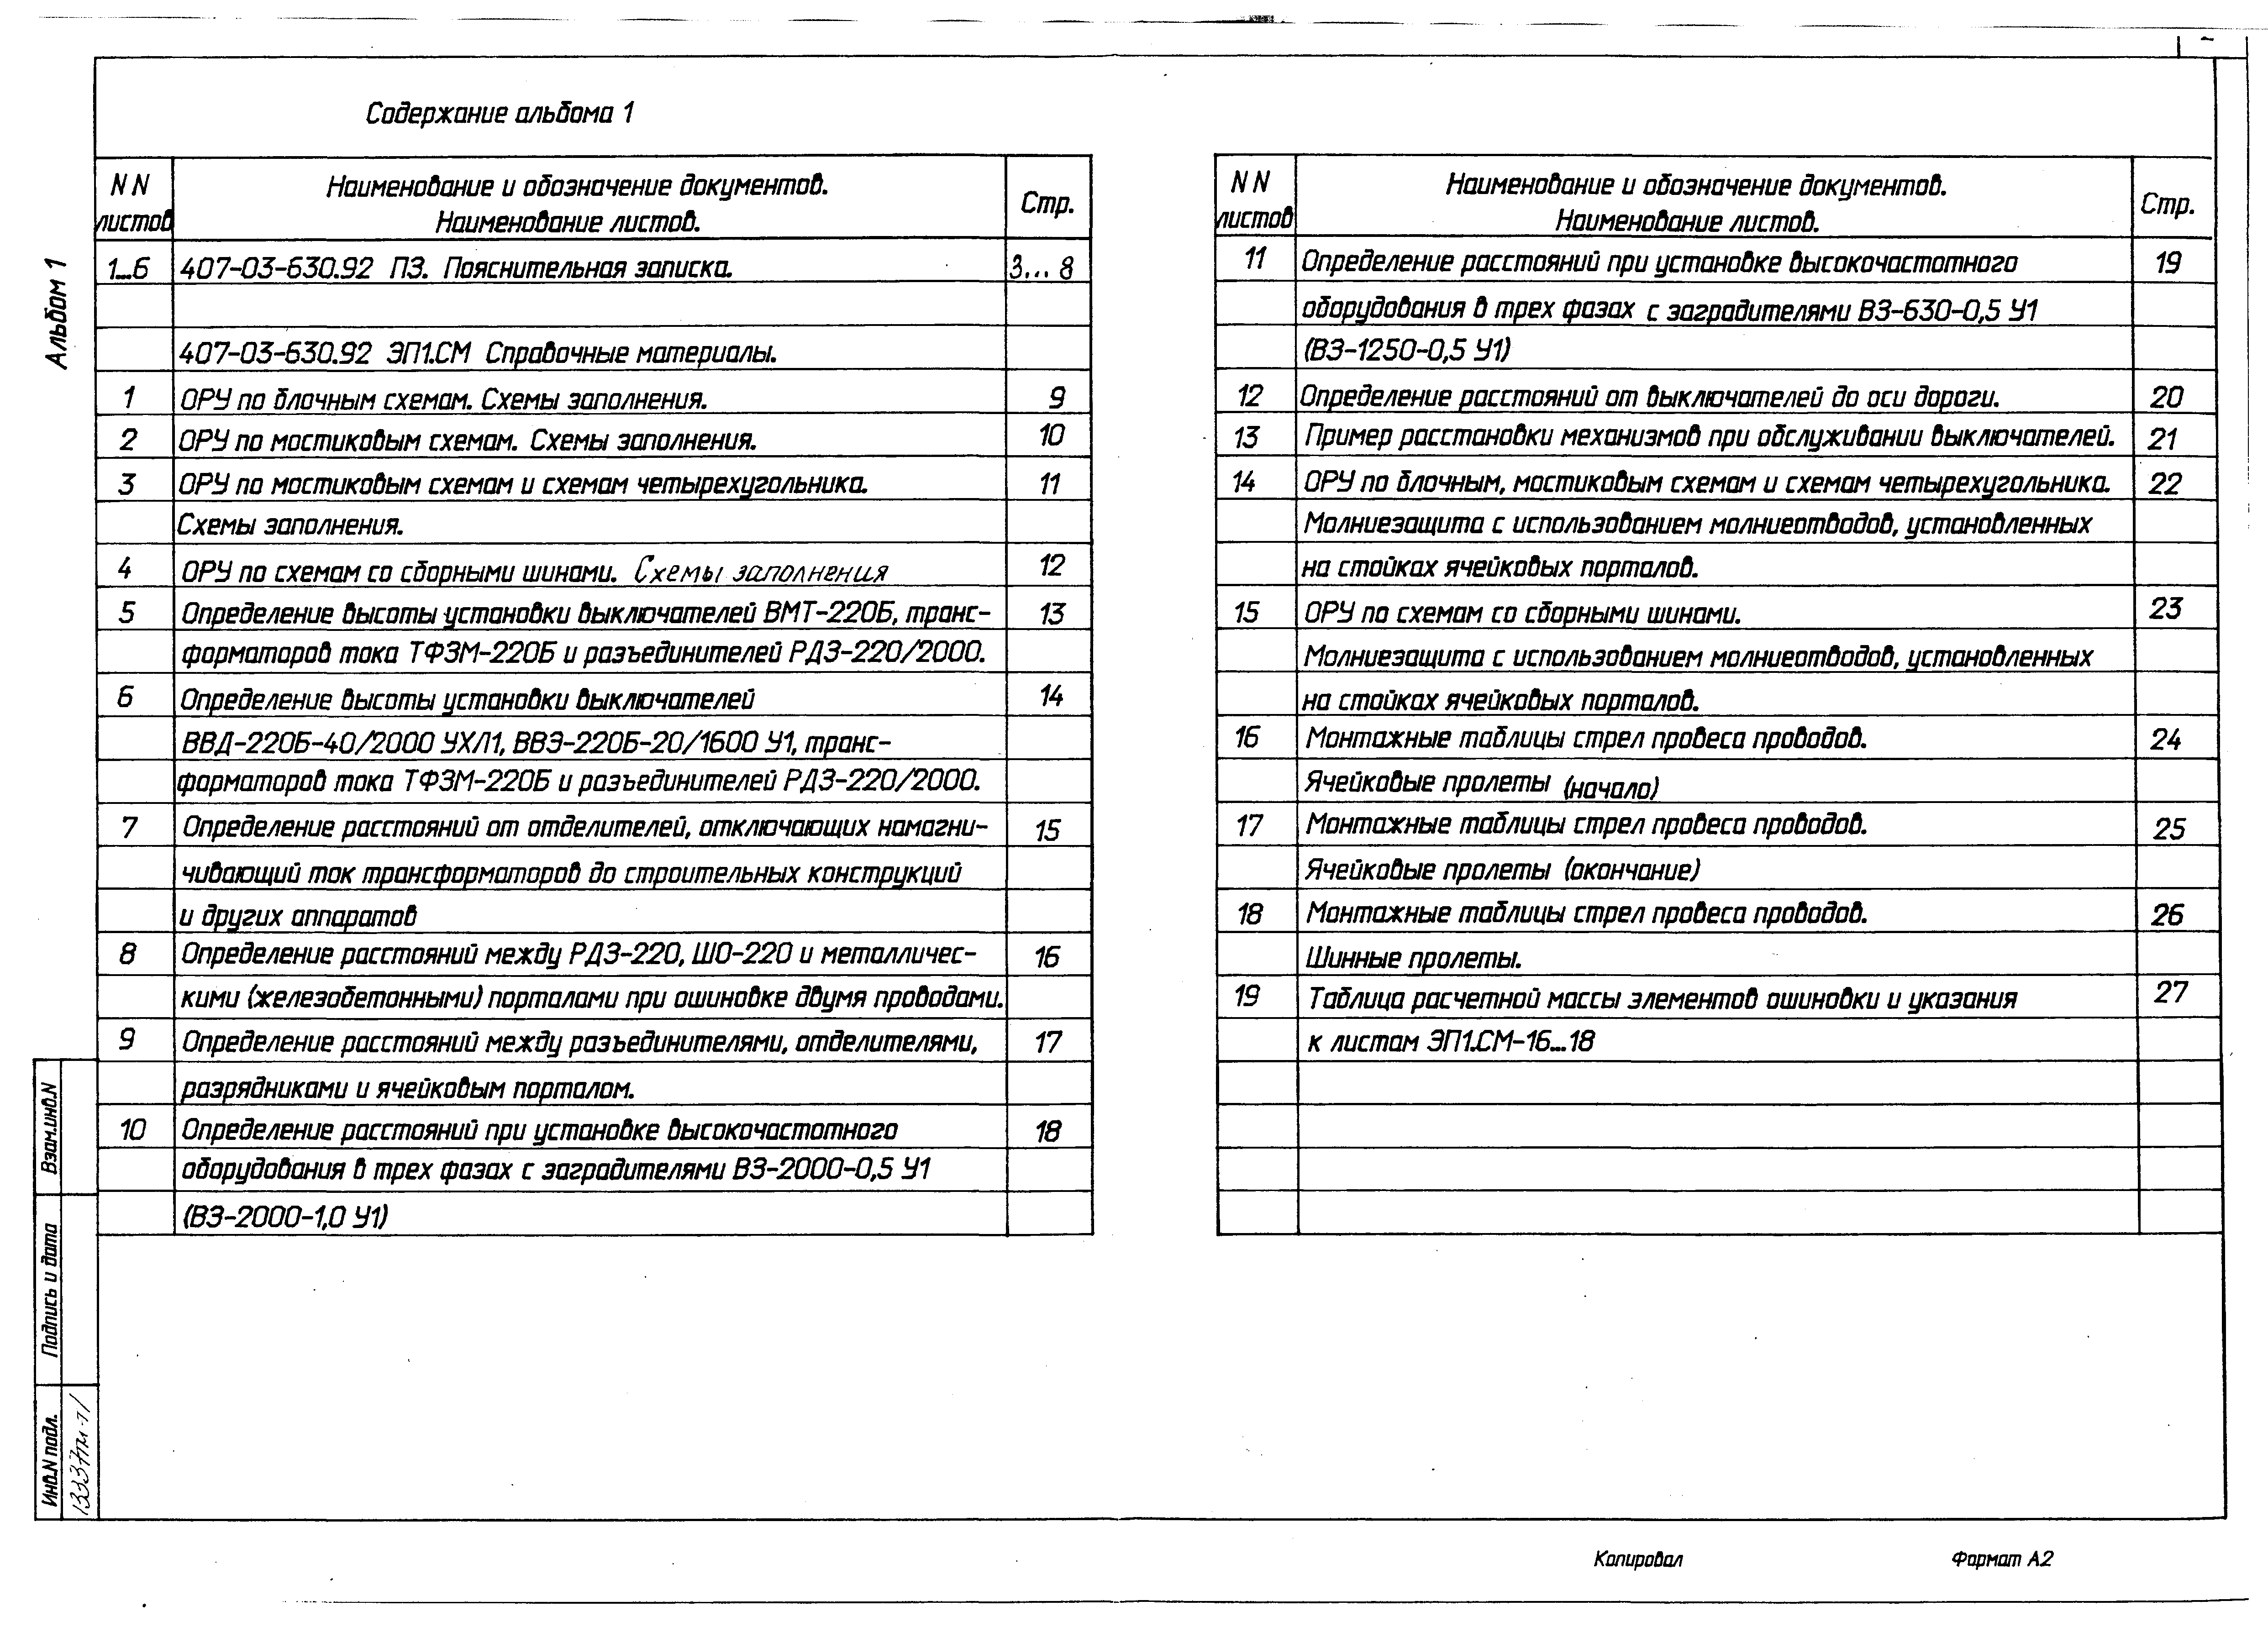 Содержание альбома 1
Альбом 1
NN листов
Наименование и обозначение документов.
Наименование листов.
Стр.
1...6 407-03-630.92 ПЗ. Пояснительная записка. 3...8
407-03-630.92 ЭП1.СМ Справочные материалы.
1 ОРУ по блочным схемам. Схемы заполнения. 9
2 ОРУ по мостиковым схемам. Схемы заполнения. 10
3 ОРУ по мостиковым схемам и схемам четырехугольника. 11
Схемы заполнения.
4 ОРУ по схемам со сборными шинами. Схемы заполнения 12
5 Определение высоты установки выключателей ВМТ-220Б, транс- 13
форматоров тока ТФЗМ-220Б и разъединителей РДЗ-220/2000.
6 Определение высоты установки выключателей 14
ВВД-220Б-40/2000 УХЛ1, ВВЭ-220Б-20/1600 У1, транс-
форматоров тока ТФЗМ-220Б и разъединителей РДЗ-220/2000.
7 Определение расстояний от отделителей, отключающих намагни- 15
чивающий ток трансформаторов до строительных конструкций
и других аппаратов
8 Определение расстояний между РДЗ-220, ШО-220 и металличес- 16
кими (железобетонными) порталами при ошиновке двумя проводами.
9 Определение расстояний между разъединителями, отделителями, 17
разрядниками и ячейковым порталом.
10 Определение расстояний при установке высокочастотного 18
оборудования в трех фазах с заградителями ВЗ-2000-0,5 У1
(ВЗ-2000-1,0 У1)
NN листов
Наименование и обозначение документов.
Наименование листов.
Стр.
11 Определение расстояний при установке высокочастотного 19
оборудования в трех фазах с заградителями ВЗ-630-0,5 У1
(ВЗ-1250-0,5 У1)
12 Определение расстояний от выключателей до оси дороги. 20
13 Пример расстановки механизмов при обслуживании выключателей. 21
14 ОРУ по блочным, мостиковым схемам и схемам четырехугольника. 22
Молниезащита с использованием молниеотводов, установленных
на стойках ячейковых порталов.
15 ОРУ по схемам со сборными шинами. 23
Молниезащита с использованием молниеотводов, установленных
на стойках ячейковых порталов.
16 Монтажные таблицы стрел провеса проводов. 24
Ячейковые пролеты (начало)
17 Монтажные таблицы стрел провеса проводов. 25
Ячейковые пролеты (окончание)
18 Монтажные таблицы стрел провеса проводов. 26
Шинные пролеты.
19 Таблица расчетной массы элементов ошиновки и указания 27
к листам ЭП1.СМ-16...18
Взам.инв.N
Подпись и дата
Инв.N подл.
13337тм-т1
Копировал
Формат А2